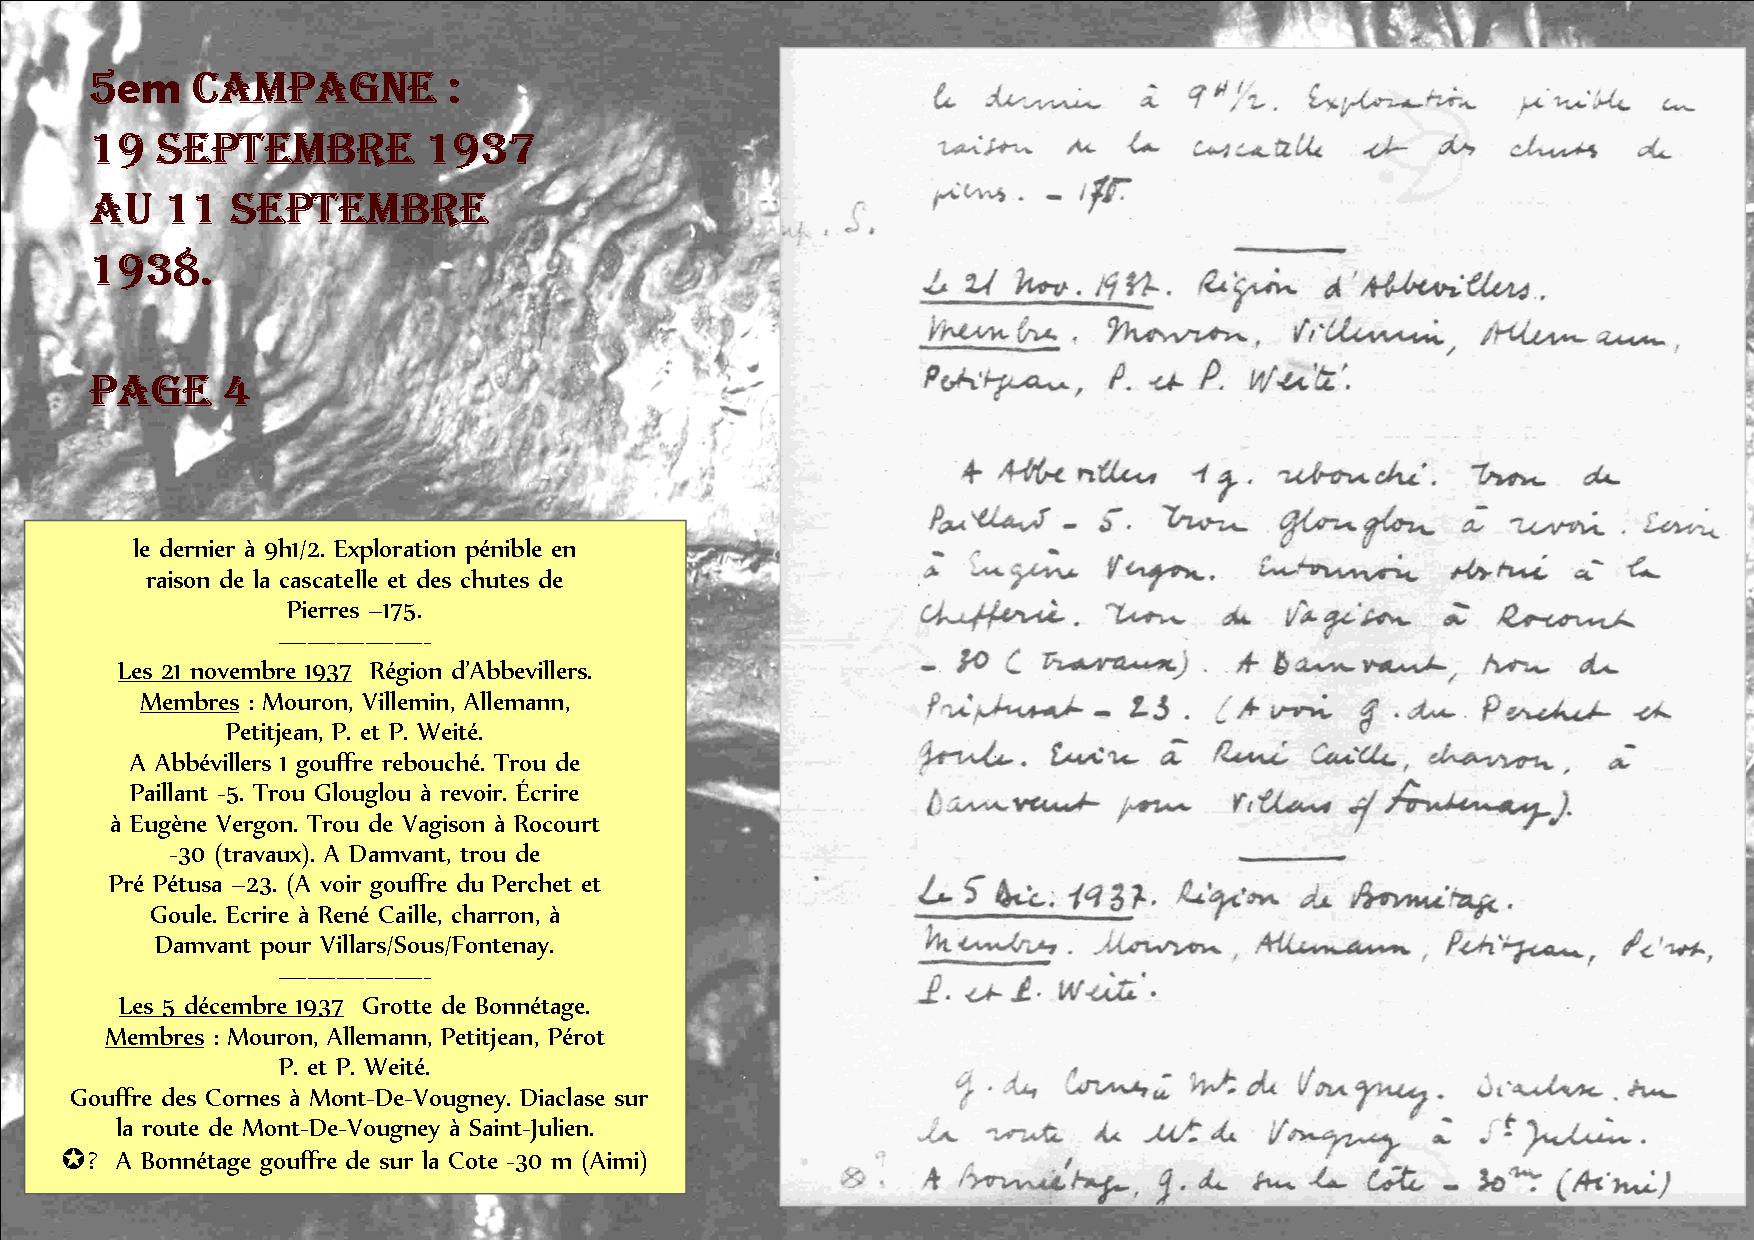 5em CAMPAGNE :
19 SEPTEMBRE 1937
AU 11 SEPTEMBRE
1938.
PAGE 4
le dernier à 9h1/2. Exploration pénible en
raison de la cascatelle et des chutes de
Pierres –175.
Les 21 novembre 1937 Région d'Abbevillers.
Membres : Mouron, Villemin, Allemann,
Petitjean, P. et P. Weité.
A Abbévillers 1 gouffre rebouché. Trou de
Paillant -5. Trou Glouglou à revoir. Écrire
à Eugène Vergon. Trou de Vagison à Rocourt
-30 (travaux). A Damvant, trou de
Pré Pétusa –23. (A voir gouffre du Perchet et
Goule. Ecrire à René Caille, charron, à
Damvant pour Villars/Sous/Fontenay.
Les 5 décembre 1937 Grotte de Bonnétage.
Membres : Mouron, Allemann, Petitjean, Pérot
P. et P. Weité.
Gouffre des Cornes à Mont-De-Vougney. Diaclase sur
la route de Mont-De-Vougney à Saint-Julien.
✪? A Bonnétage gouffre de sur la Cote -30 m (Aimi)
le dernier à 9H1/2. Exploration pénible en
raison de la cascatelle et des chutes de
piers. - 175.
S.
Le 21 Nov. 1937. Région d'Abbevillers.
Membres. Mouron, Villemin, Allemann,
Petitjean, P. et P. Weité.
A Abbevillers 1 g. rebouché. Trou de
Paillard - 5. Trou Glouglou à revoir. Ecrire
à Eugène Vergon. Entonnoir obstrué à la
Chefferie. Trou de Vagison à Rocourt
- 30 (travaux). A Damvant, trou de
Préptusat - 23. (A voir g. du Perchet et
Goule. Ecrire à René Caille, charron, à
Damvant pour Villars s/ Fontenay).
Le 5 Déc. 1937. Région de Bonnétage.
Membres. Mouron, Allemann, Petitjean, Pérot,
P. et P. Weité.
g. des Cornes à Mt. de Vougney. Diaclase sur
la route de Mt. de Vougney à St Julien.
⊗? A Bonnétage, g. de sur la Côte - 30m. (Aimi)